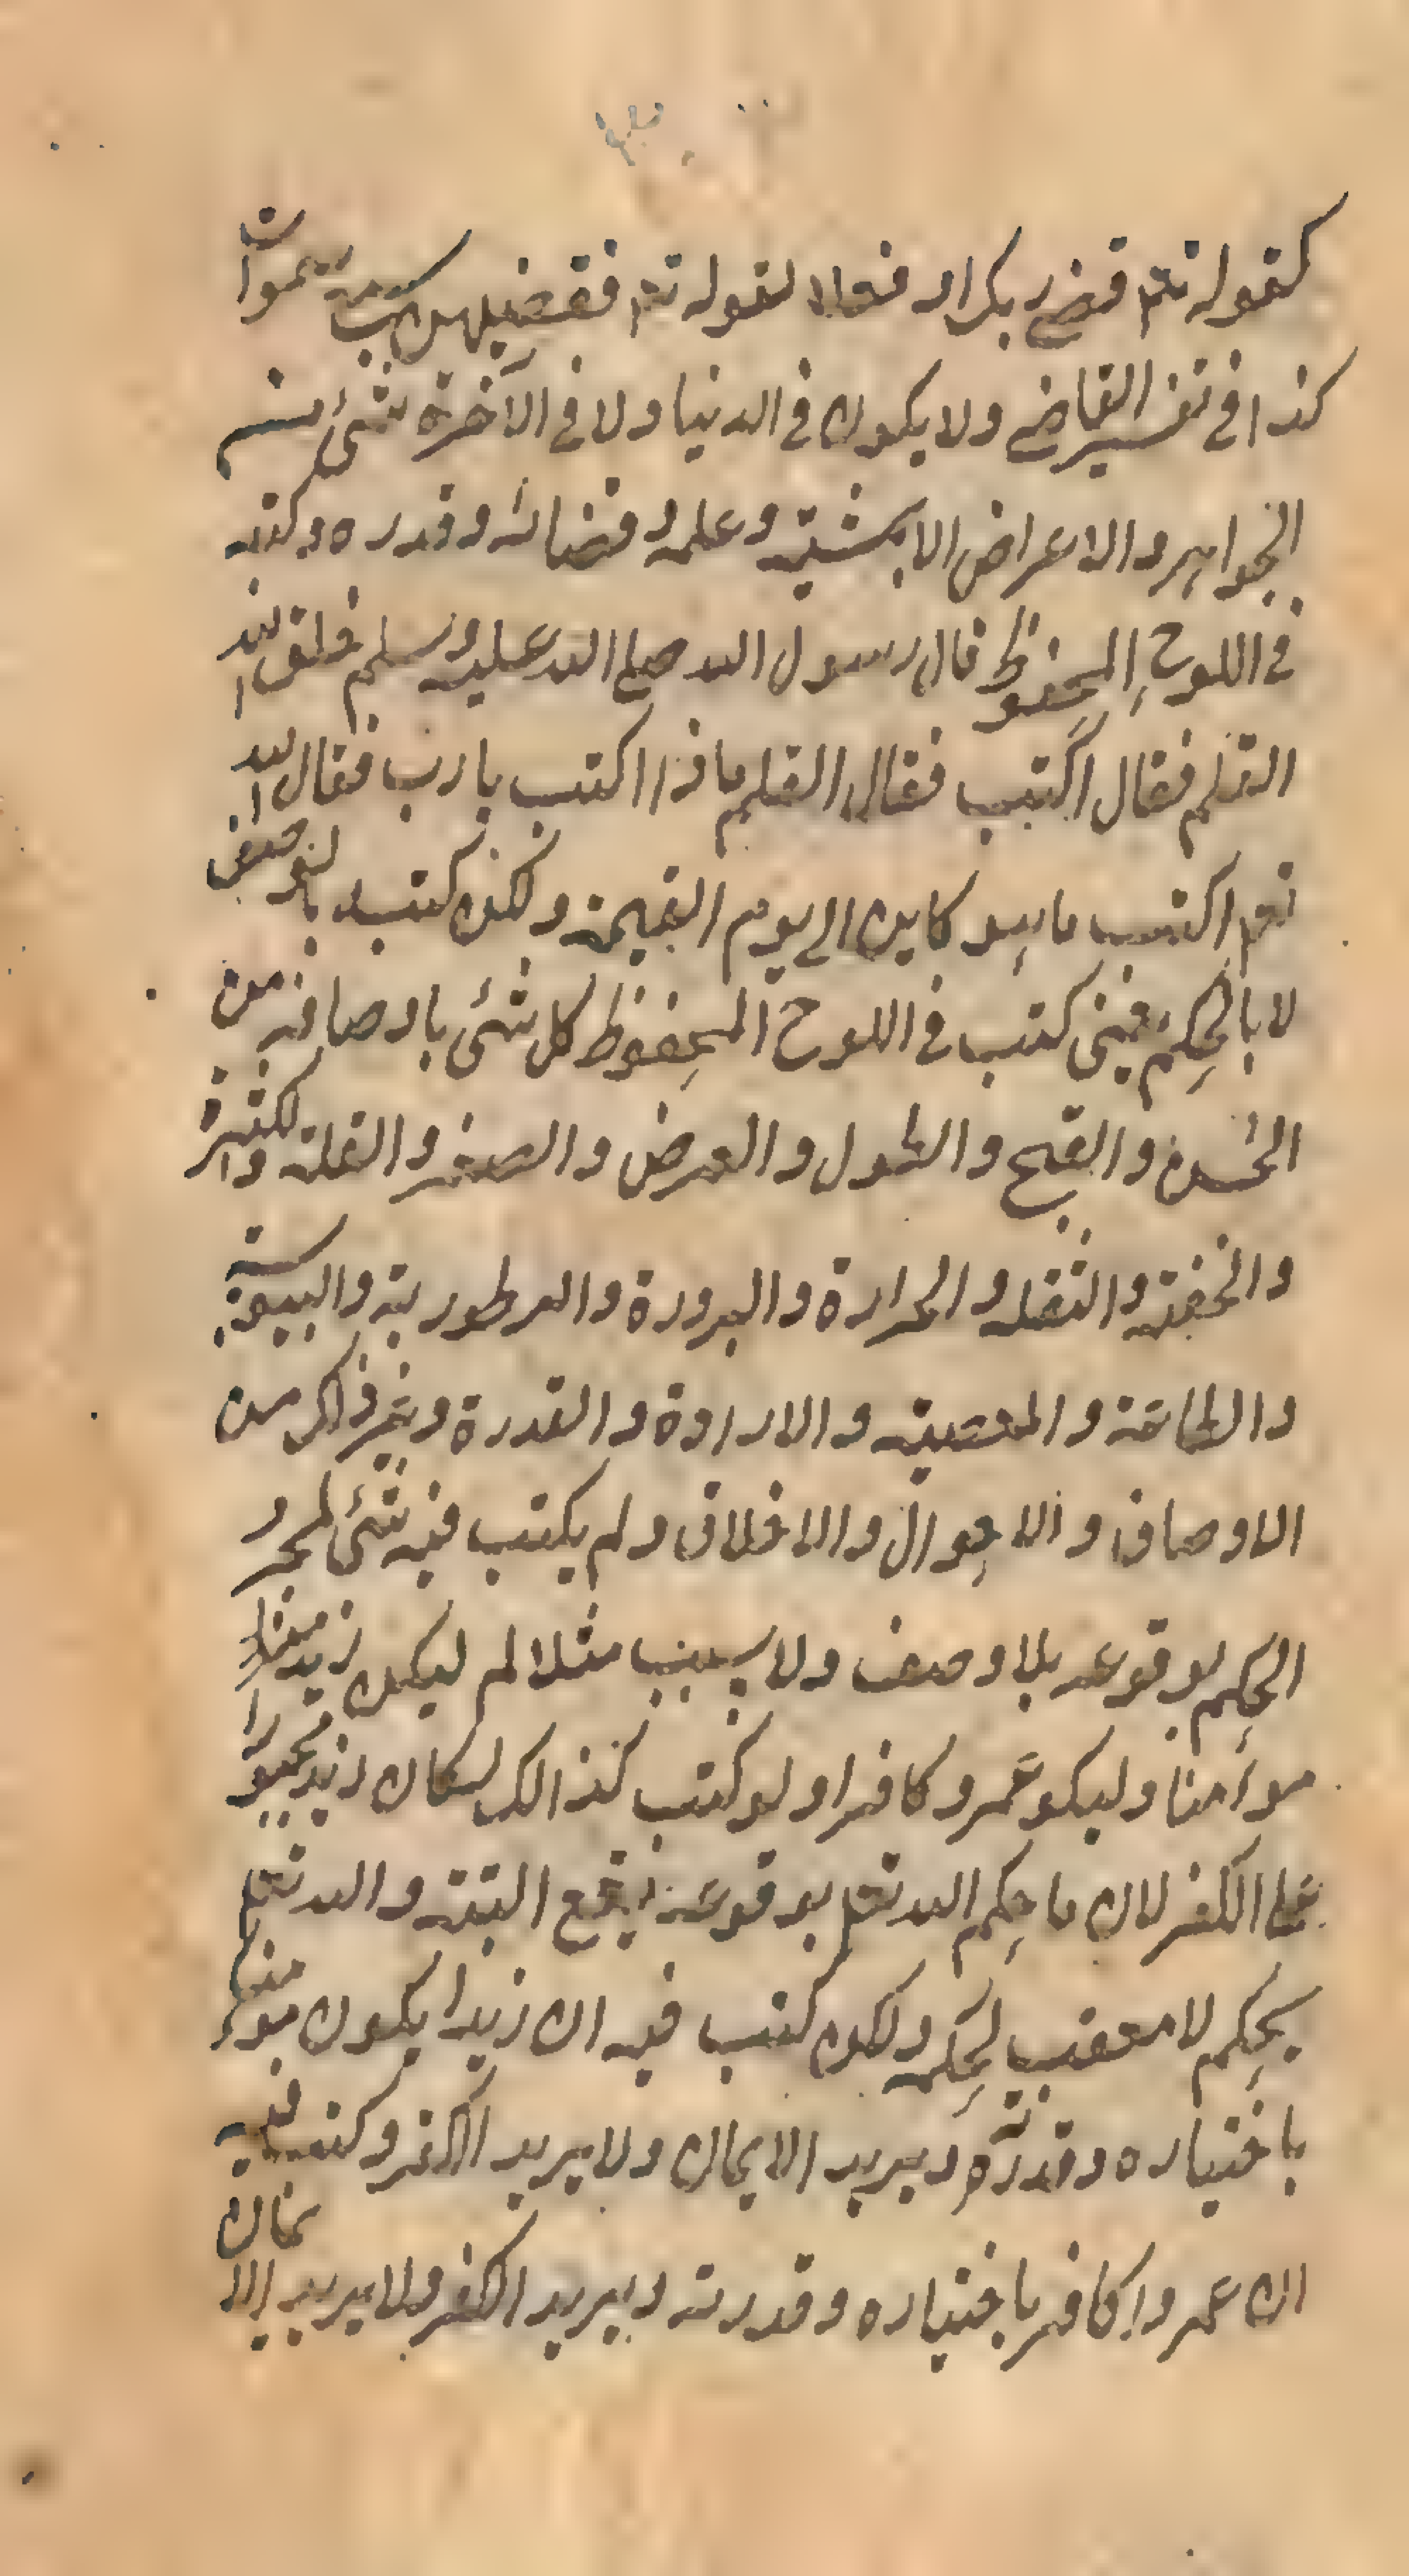 كقوله تعم قضى ربك او فعلا لقوله تعم فقضيهن سبع سموات
كذا فى تفسير القاضى ولا يكون فى الدنيا ولا فى الآخرة شئ من
الجواهر والاعراض الا بمشيته وعلمه وقضائه وقدره وكتبه
فى اللوح المحفوظ قال رسول الله صلى الله عليه وسلم خلق الله
القلم فقال اكتب فقال القلم ماذا اكتب يا رب فقال الله
تعم اكتب ما هو كاين الى يوم القيمة ولكن كتبه بالوصف
لا بالحكم يعنى كتب فى اللوح المحفوظ كل شئ باوصافه من
الحسن والقبح والطول والعرض والصغر والقلة والكثرة
والخفة والثقله والحرارة والبرودة والرطوربة واليبوسة
والطاعة والمعصية والارادة والقدرة وغير ذالك من
الاوصاف والاحوال والاخلاق ولم يكتب فيه شئ لمجرد
الحكم بوقوعه بلا وصف ولا سبب مثلا لم ليكن زيد مثلا
مؤمنا وليكو عمرو كافرا ولو كتب كذالك لكان زيد مجبورا
على الكفر لان ما حكم الله تعم بوقوعه يقع البتة والله تعم
يحكم لا معقب لحكمه ولكن كتب فيه ان زيدا يكون مؤمنا
باختياره وقدرته ويريد الايمان ولا يريد الكفر وكتب فيه
ان عمروا كافر باختياره وقدرته ويريد الكفر ولا يريد الايمان